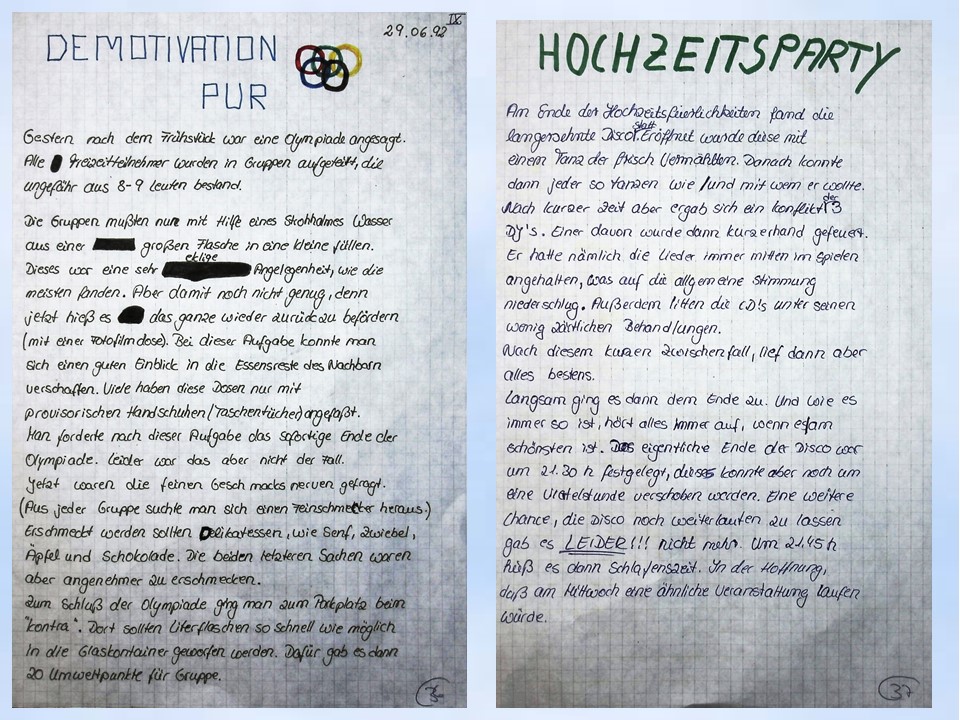 29.06.92
IX
DEMOTIVATION
PUR
Gestern nach dem Frühstück war eine Olympiade angesagt.
Alle Freizeitteilnehmer wurden in Gruppen aufgeteilt, die
ungefähr aus 8-9 Leuten bestand.
Die Gruppen mußten nun mit Hilfe eines Strohhalmes Wasser
aus einer großen Flasche in eine kleine füllen.
Dieses war eine sehr eklige Angelegenheit, wie die
meisten fanden. Aber damit noch nicht genug, denn
jetzt hieß es das ganze wieder zurück zu befördern
(mit einer Fotofilmdose). Bei dieser Aufgabe konnte man
sich einen guten Einblick in die Essensreste des Nachbarn
verschaffen. Viele haben diese Dosen nur mit
provisorischen Handschuhen (Taschentücher) angefaßt.
Man forderte nach dieser Aufgabe das sofortige Ende der
Olympiade. Leider war das aber nicht der Fall.
Jetzt waren die feinen Geschmacksnerven gefragt.
(Aus jeder Gruppe suchte man sich einen Feinschmecker heraus.)
Erschmeckt werden sollten Delikatessen, wie Senf, Zwiebel,
Äpfel und Schokolade. Die beiden letzteren Sachen waren
aber angenehmer zu erschmecken.
Zum Schluß der Olympiade ging man zum Parkplatz beim
"Kontra". Dort sollten Literflaschen so schnell wie möglich
in die Glaskontainer geworfen werden. Dafür gab es dann
20 Umweltpunkte für Gruppe.
HOCHZEITSPARTY
Am Ende der Hochzeitsfeierlichkeiten fand die
langersehnte Disco statt. Eröffnet wurde diese mit
einem Tanz der frisch Vermählten. Danach konnte
dann jeder so tanzen wie /und mit wem er wollte.
Nach kurzer Zeit aber ergab sich ein Konflikt der 3
DJ's. Einer davon wurde dann kurzerhand gefeuert.
Er hatte nämlich die Lieder immer mitten im Spielen
angehalten, was auf die allgemeine Stimmung
niederschlug. Außerdem litten die CD!s unter seinen
wenig zärtlichen Behandlungen.
Nach diesem kurzen Zwischenfall, lief dann aber
alles bestens.
Langsam ging es dann dem Ende zu. Und wie es
immer so ist, hört alles immer auf, wenn es am
schönsten ist. Das eigentliche Ende der Disco war
um 21.30 h festgelegt, dieses konnte aber noch um
eine Viertelstunde verschoben werden. Eine weitere
Chance, die Disco noch weiterlaufen zu lassen
gab es LEIDER!!! nicht mehr. Um 21.45 h
hieß es dann Schlafenszeit. In der Hoffnung,
daß am Mittwoch eine ähnliche Veranstaltung laufen
würde.
37